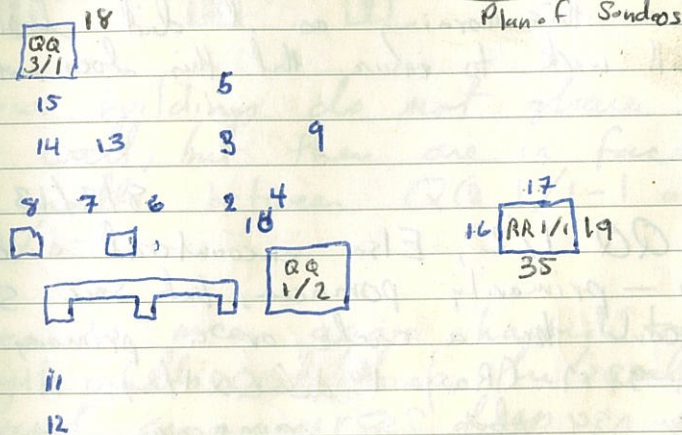 18
Plan of Sondoos
QQ
3/1
5
15
14 13 3 9
8 7 6 2 4
10
17
16 RR 1/1 19
35
QQ
1/2
11
12